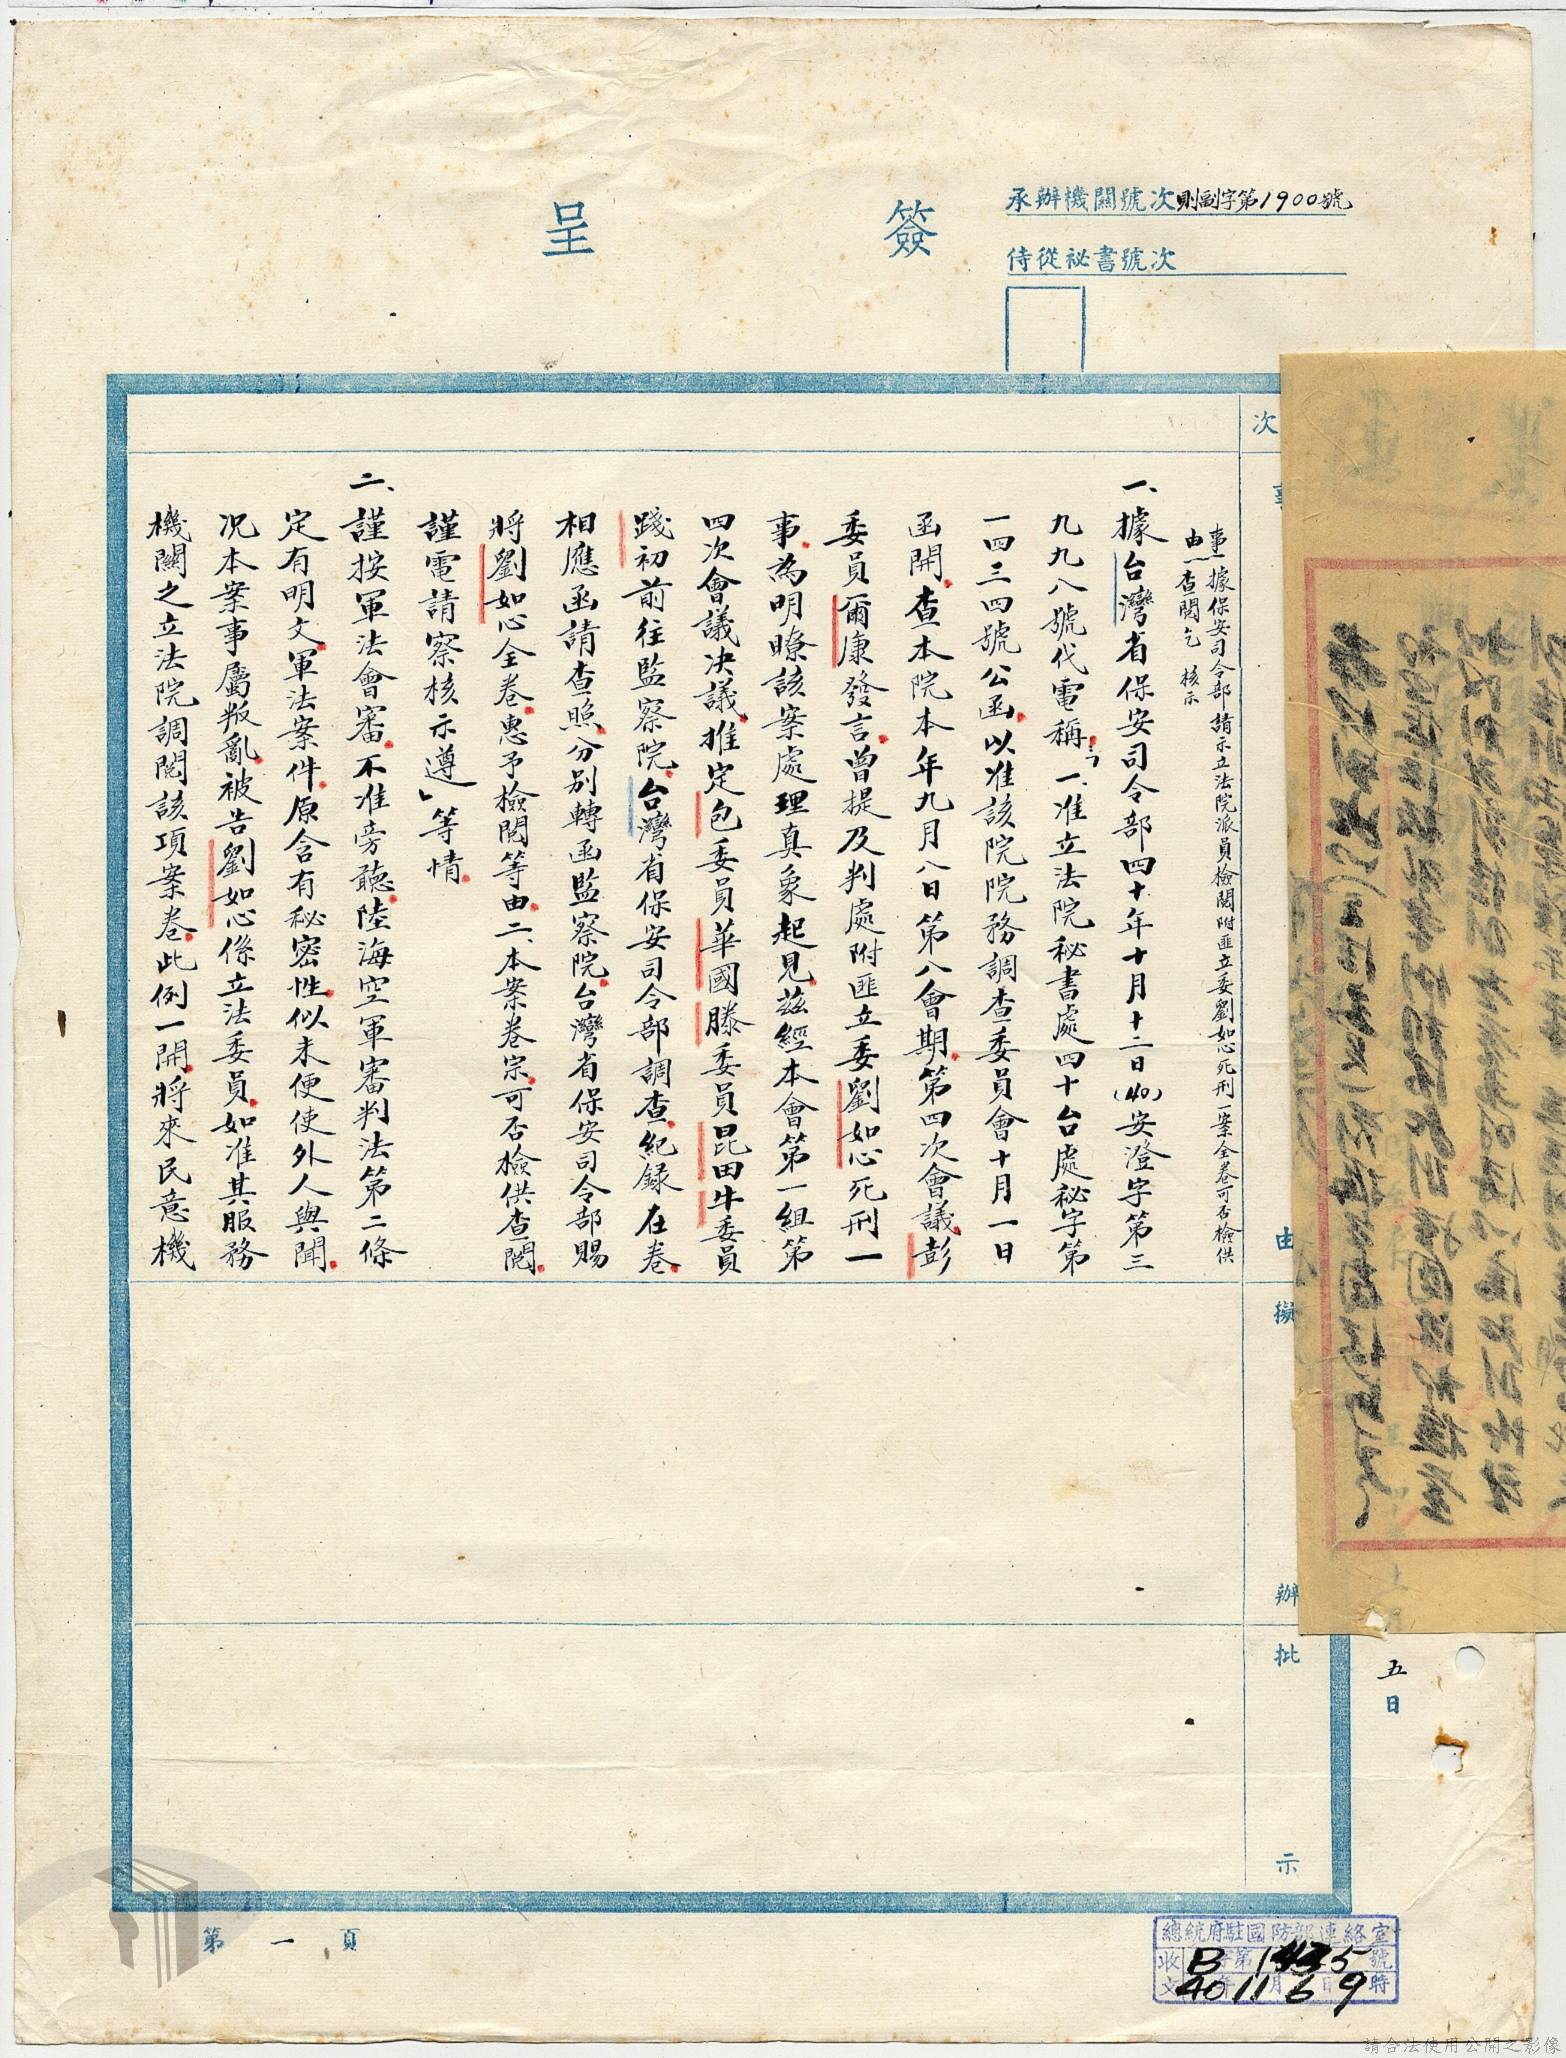 簽呈
承辦機關號次則副字第1900號
侍從祕書號次
次
事由
擬辦
批示
事由
據保安司令部請示立法院派員檢閱附匪立委劉如心死刑一案全卷可否檢供
查閱乞 核示
一、據台灣省保安司令部四十年十月十二日(40)安澄字第三
九九八號代電稱:「一、准立法院秘書處四十台處秘字第
一四三四號公函,以准該院院務調查委員會十月一日
函開,查本院本年九月八日第八會期第四次會議,彭
委員爾康發言,曾提及判處附匪立委劉如心死刑一
事,為明瞭該案處理真象起見,茲經本會第一組第
四次會議決議,推定包委員華國滕委員昆田牛委員
踐初前往監察院、台灣省保安司令部調查,紀錄在卷,
相應函請查照,分別轉函監察院、台灣省保安司令部賜
將劉如心全卷,惠予檢閱等由,二、本案卷宗,可否檢供查閱,
謹電請察核示遵」等情。
二、謹按軍法會審,不准旁聽,陸海空軍審判法第二條
定有明文,軍法案件,原含有秘密性,似未便使外人與聞,
况本案事屬叛亂,被告劉如心係立法委員,如准其服務
機關之立法院調閱該項案卷,此例一開,將來民意機
五日
第一頁
總統府駐國防部連絡室
收文 B字第1435號
40 11月6日9時
請合法使用公開之影像